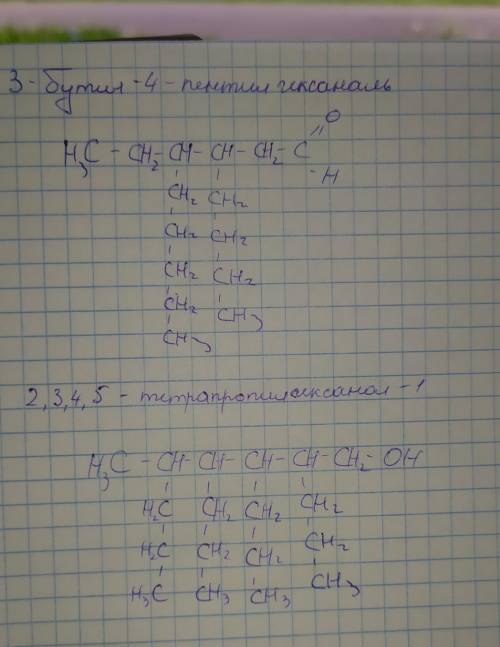 3 - бутил - 4 - пентил гексаналь
O
H3C - CH2 - CH - CH - CH2 - C
- H
CH2 CH2
CH2 CH2
CH2 CH2
CH2 CH3
CH3
2,3,4,5 - тетрапропилгексанол - 1
H3C - CH - CH - CH - CH - CH2 - OH
H2C CH2 CH2 CH2
H2C CH2 CH2 CH2
H3C CH3 CH3 CH3